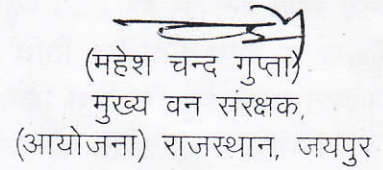 (महेश चन्द गुप्ता)
मुख्य वन संरक्षक,
(आयोजना) राजस्थान, जयपुर